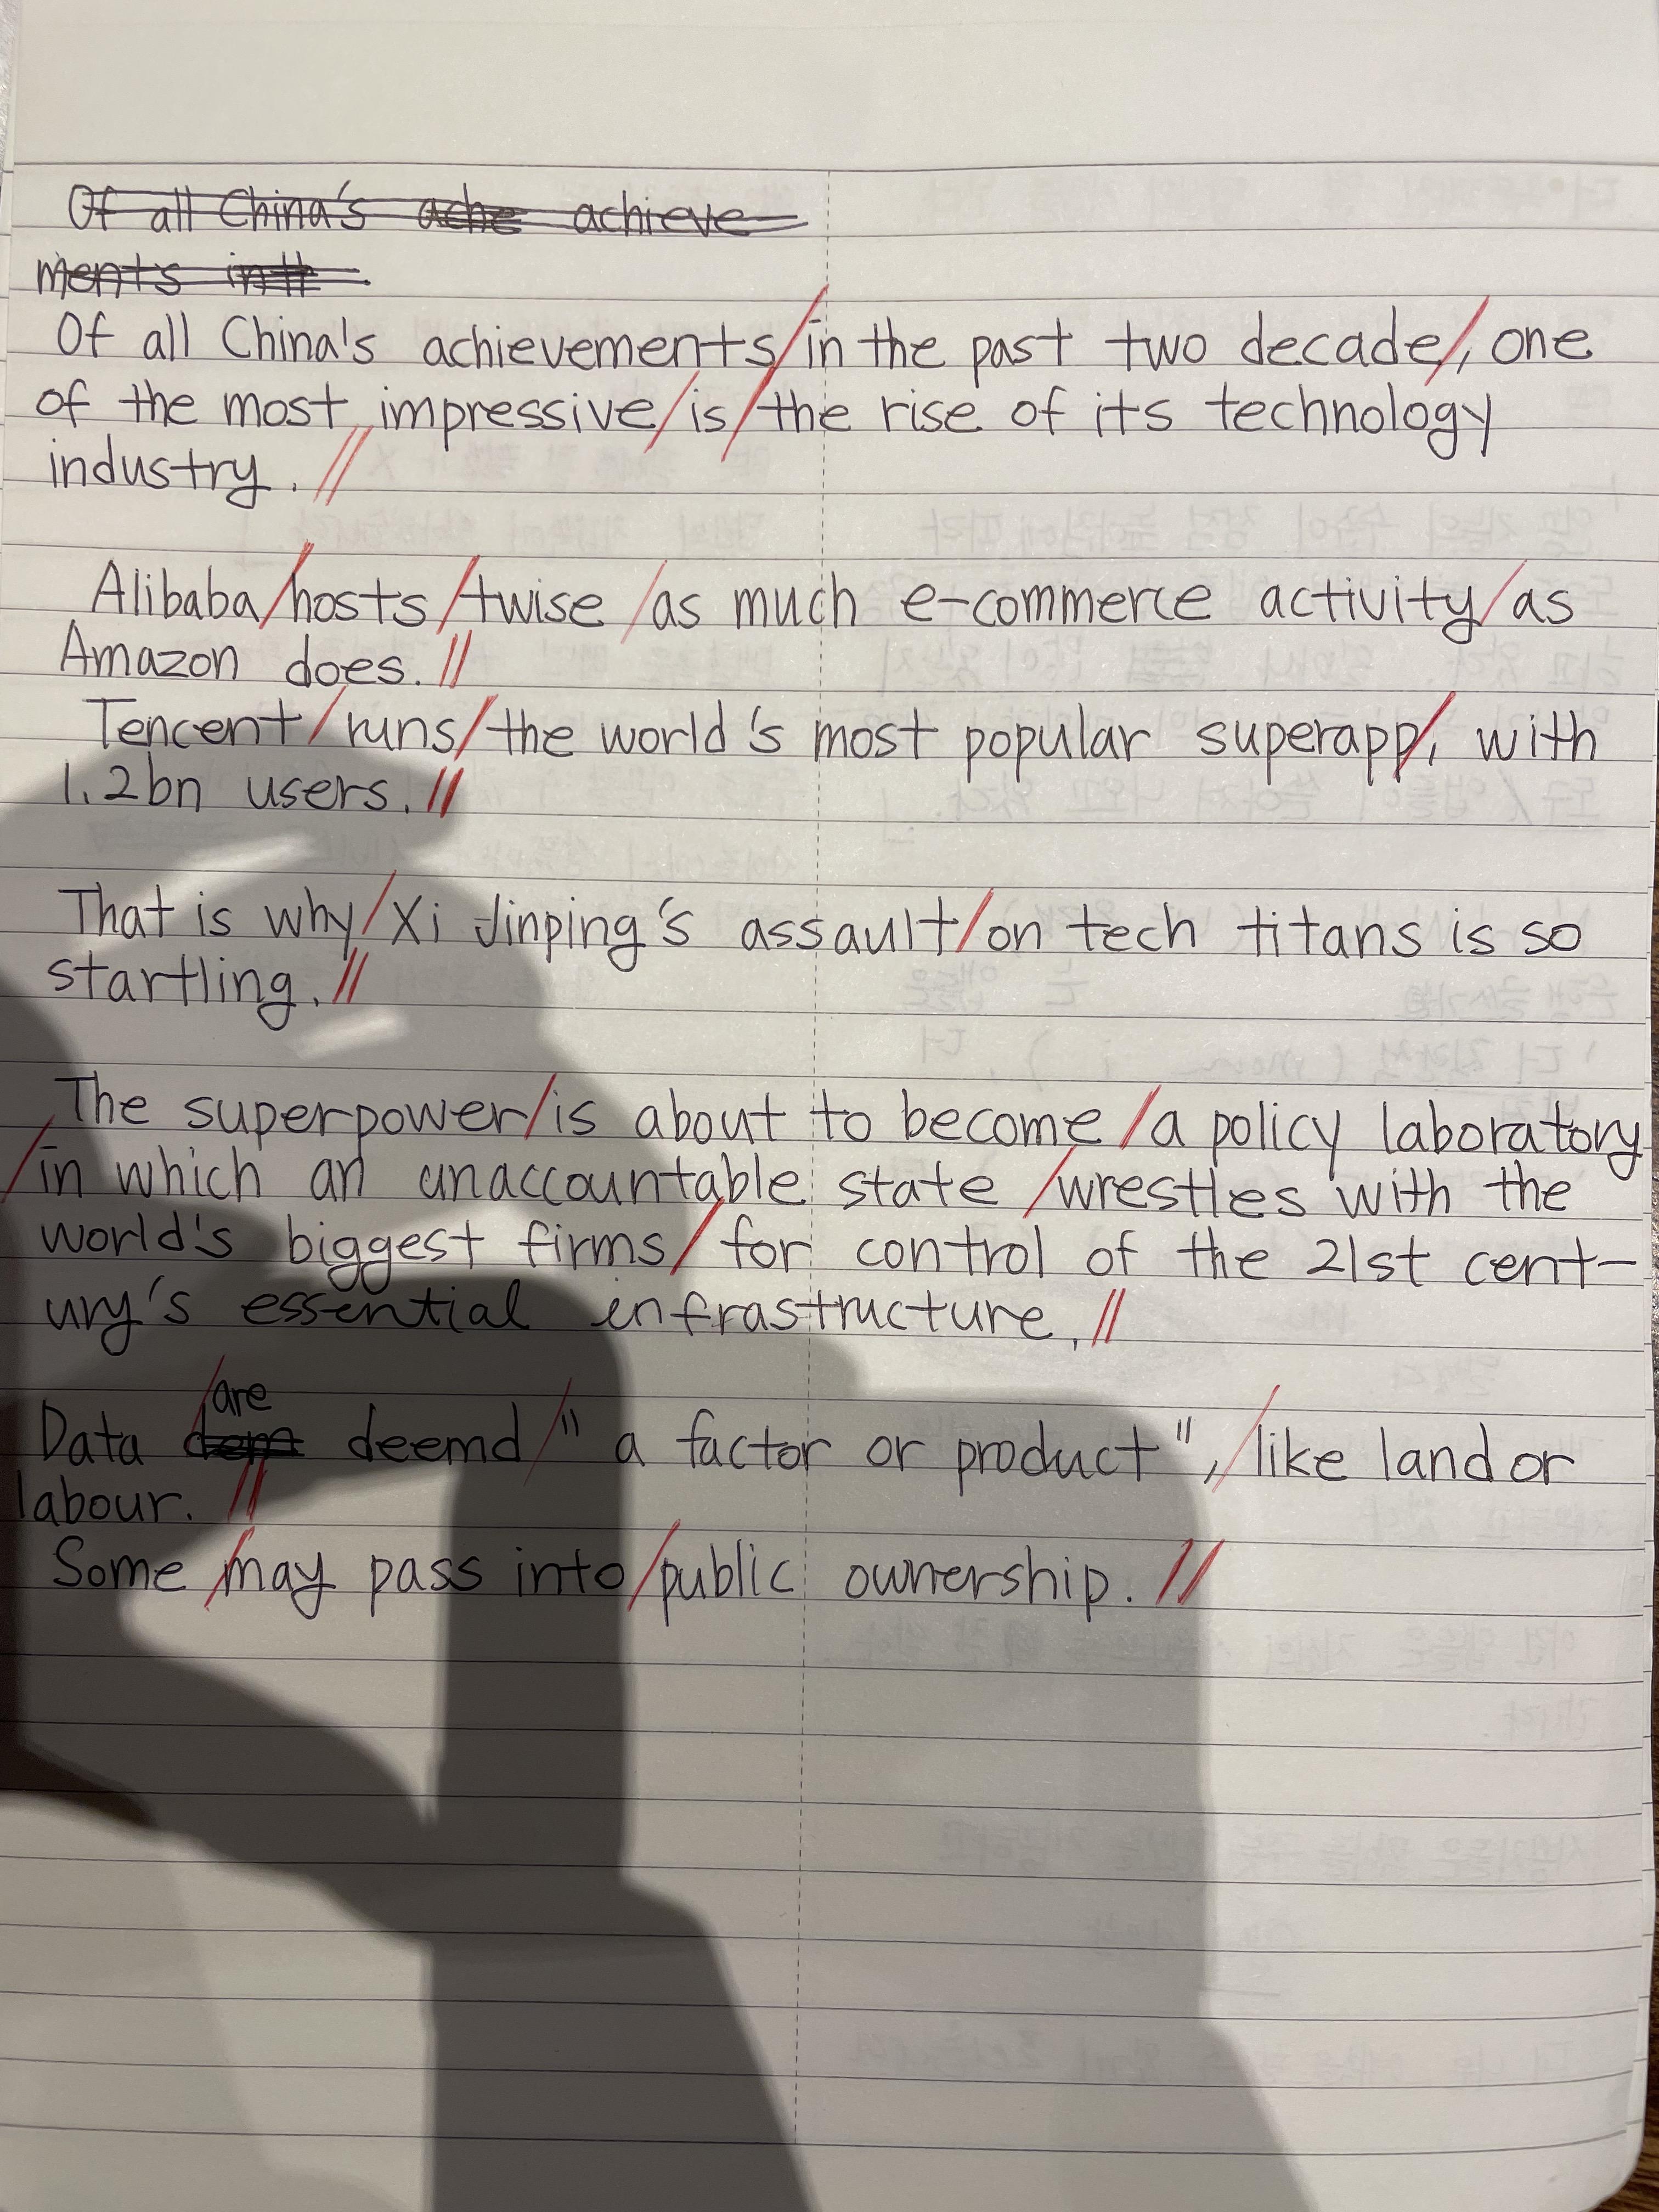 Of all China's ache achieve
ments inth
Of all China's achievements/in the past two decade/, one
of the most impressive/is/the rise of its technology
industry. //
Alibaba/hosts/twise/as much e-commerce activity/as
Amazon does. //
Tencent/runs/the world's most popular superapp/, with
1.2bn users. //
That is why/Xi Jinping's assault/on tech titans is so
startling. //
The superpower/is about to become/a policy laboratory
/in which an unaccountable state/wrestles with the
world's biggest firms/for control of the 21st cent-
ury's essential enfrastructure. //
/are
Data dem deemd/" a factor or product",/like land or
labour. //
Some/may pass into/public ownership. //